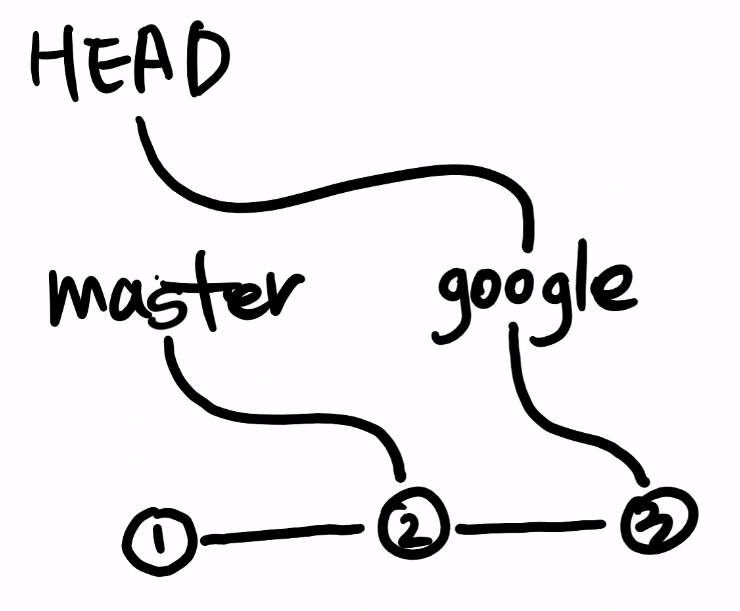 HEAD
master google
1 2 3